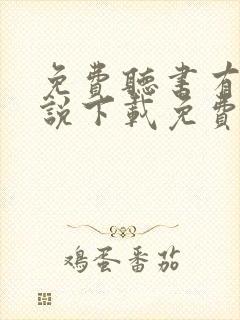 免費聽書有
說下載免費
鸡蛋番茄